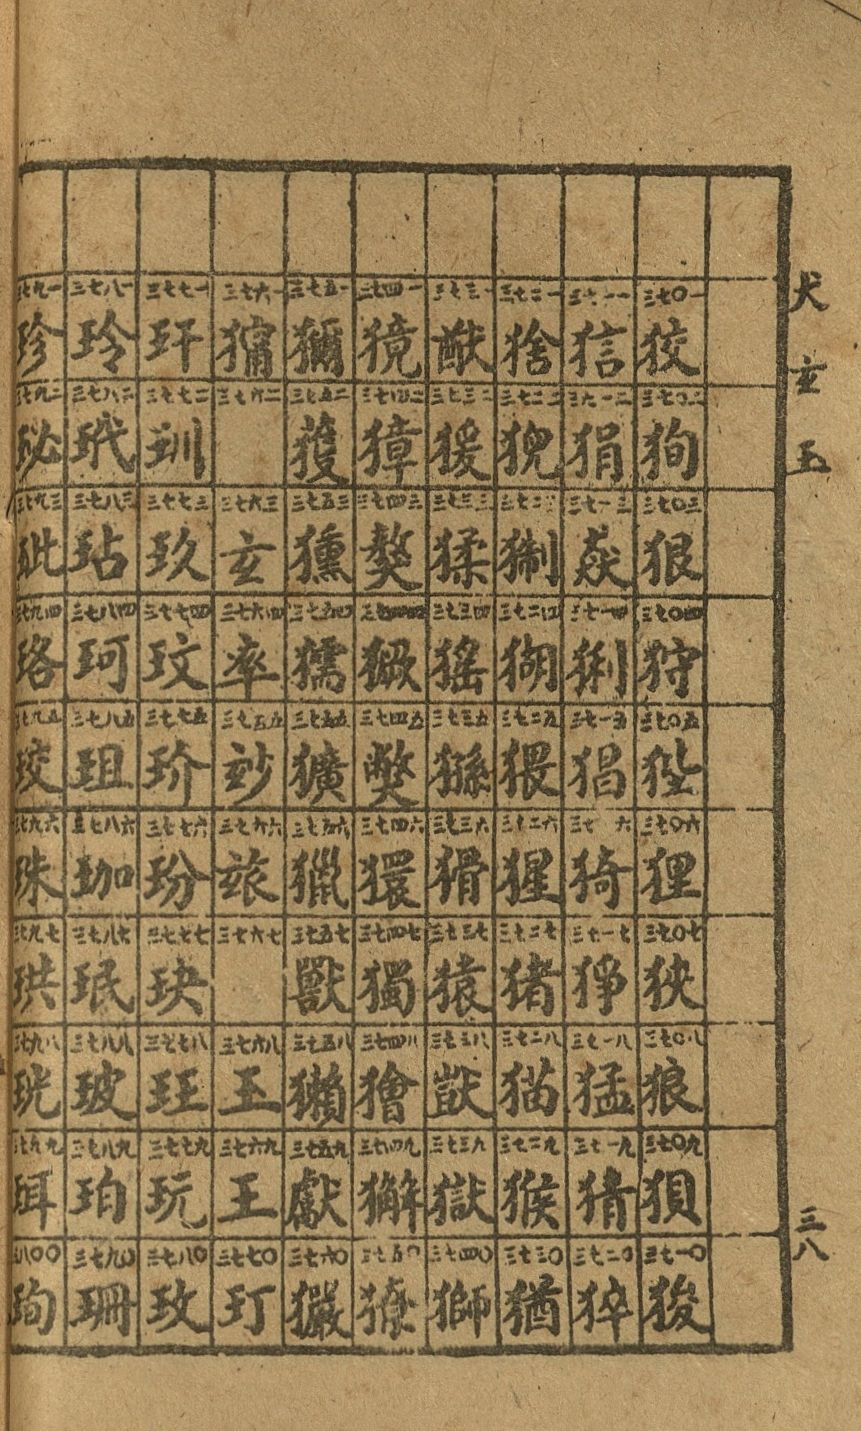 犬 玄 玉
三八
三七〇一 狡 三七〇二 狥 三七〇三 狠 三七〇四 狩 三七〇五 狴 三七〇六 狸 三七〇七 狹 三七〇八 狼 三七〇九 狽 三七一〇 狻
三七一一 狺 三七一二 狷 三七一三 猋 三七一四 猁 三七一五 猖 三七一六 猗 三七一七 猙 三七一八 猛 三七一九 猜 三七二〇 猝
三七二一 猞 三七二二 猊 三七二三 猘 三七二四 猢 三七二五 猥 三七二六 猩 三七二七 猪 三七二八 猫 三七二九 猴 三七三〇 猶
三七三一 猷 三七三二 猨 三七三三 猱 三七三四 猺 三七三五 猻 三七三六 猾 三七三七 猿 三七三八 獃 三七三九 獄 三七四〇 獅
三七四一 獍 三七四二 獐 三七四三 獒 三七四四 獗 三七四五 獘 三七四六 獧 三七四七 獨 三七四八 獪 三七四九 獬 三七五〇 獠
三七五一 獼 三七五二 獲 三七五三 獯 三七五四 獳 三七五五 獷 三七五六 獵 三七五七 獸 三七五八 獺 三七五九 獻 三七六〇 玁
三七六一 三七六二 三七六三 玄 三七六四 率 三七五五 玅 三七六六 玈 三七六七 三七六八 玉 三七六九 王 三七七〇 玎
三七七一 玕 三七七二 玔 三七七三 玖 三七七四 玟 三七七五 玠 三七七六 玢 三七七七 玦 三七七八 玨 三七七九 玩 三七八〇 玫
三七八一 玲 三七八二 玳 三七八三 玷 三七八四 珂 三七八五 珇 三七八六 珈 三七八七 珉 三七八八 玻 三七八九 珀 三七九〇 珊
七九一 珍 七九二 珌 七九三 玼 七九四 珞 七九五 珓 七九六 珠 七九七 珙 七九八 珖 七九九 珥 八〇〇 珣